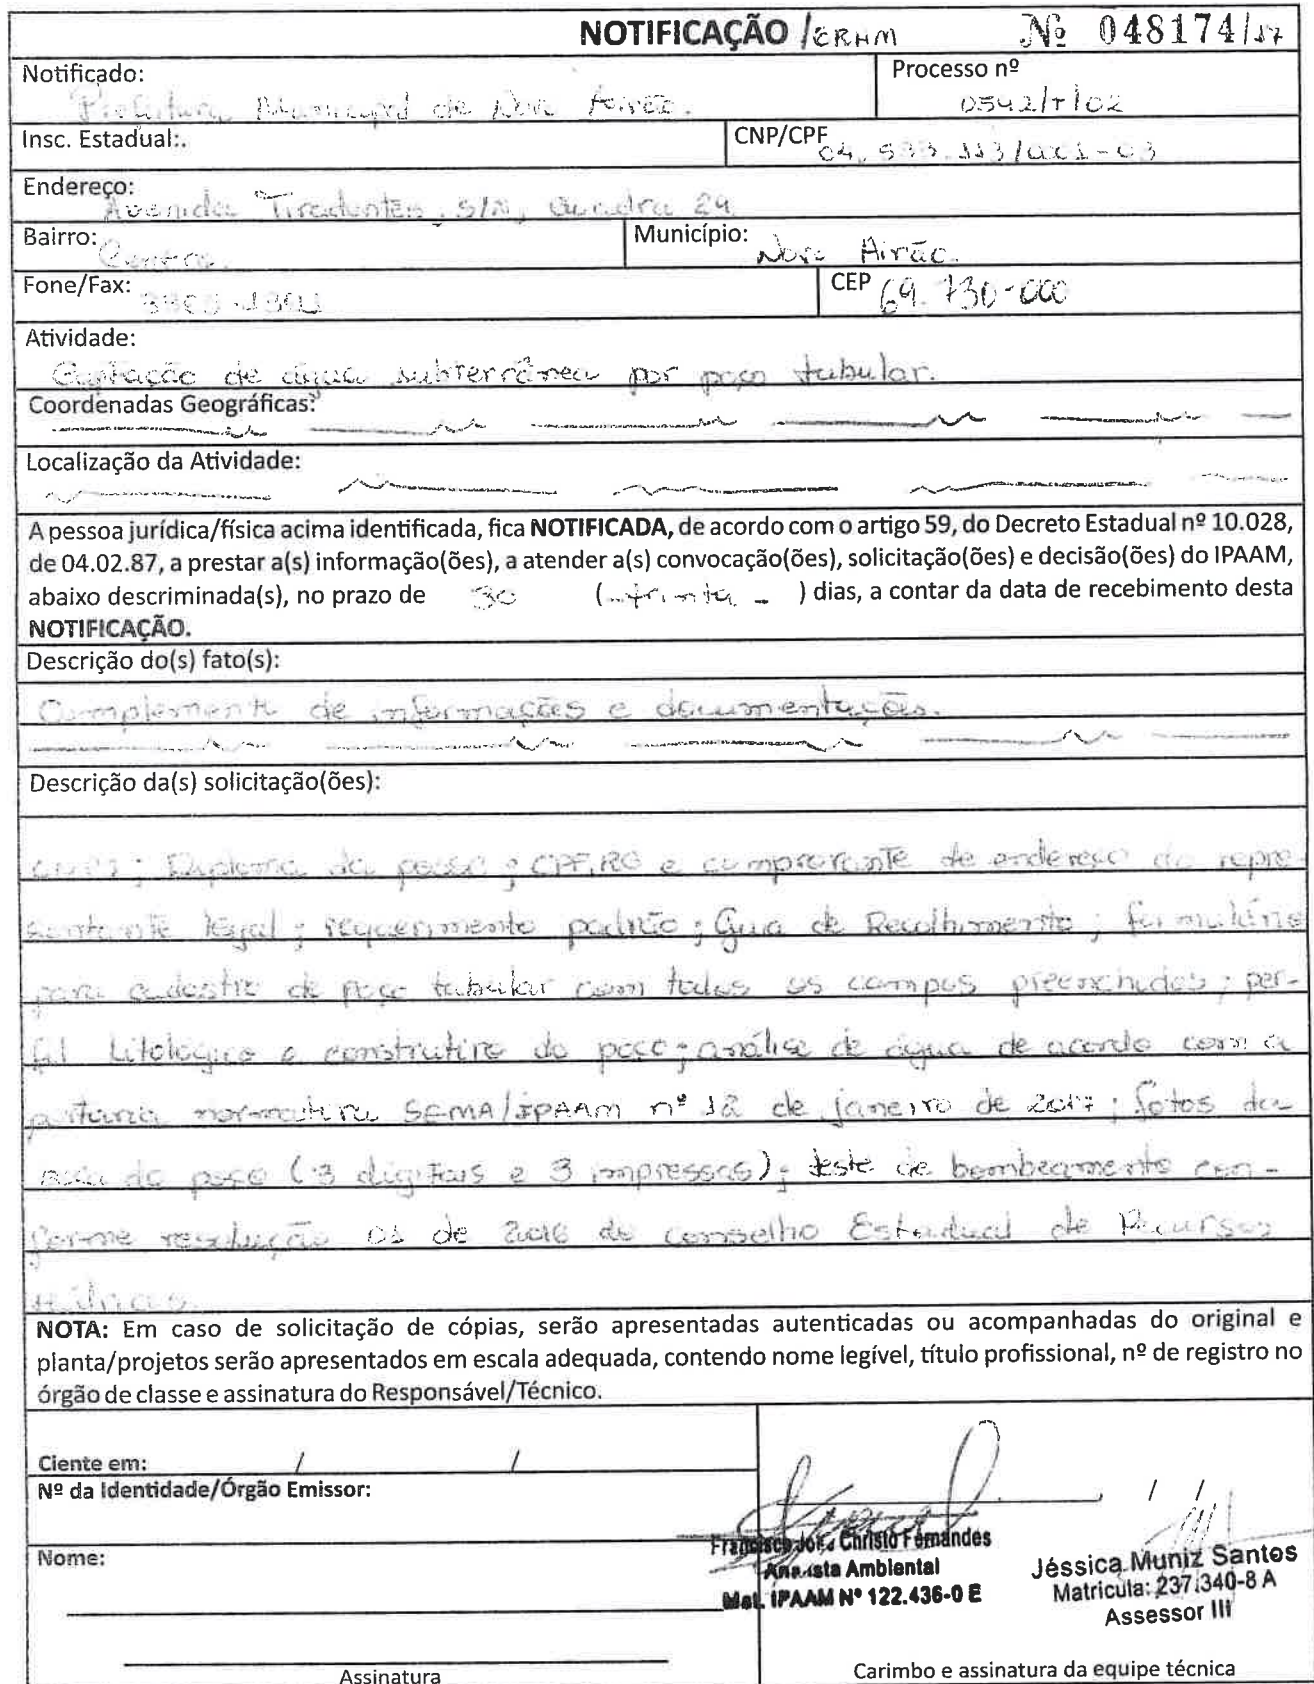 NOTIFICAÇÃO /GRHM Nº 048174/17
Notificado: Processo nº
Prefeitura Municipal de Novo Airão. 0542/T/02
Insc. Estadual:. CNP/CPF 04.
Endereço:
Avenida Tiradentes, S/N, Quadra 24
Bairro: Centro. Município: Novo Airão.
Fone/Fax: CEP 69.730-000
Atividade:
Captação de água subterrânea por poço tubular.
Coordenadas Geográficas:
Localização da Atividade:
A pessoa jurídica/física acima identificada, fica NOTIFICADA, de acordo com o artigo 59, do Decreto Estadual nº 10.028,
de 04.02.87, a prestar a(s) informação(ões), a atender a(s) convocação(ões), solicitação(ões) e decisão(ões) do IPAAM,
abaixo descriminada(s), no prazo de 30 (trinta) dias, a contar da data de recebimento desta
NOTIFICAÇÃO.
Descrição do(s) fato(s):
Complemento de informações e documentações.
Descrição da(s) solicitação(ões):
CNPJ; Diploma da posse; CPF, RG e comprovante de endereço do repre-
sentante legal; requerimento padrão; Guia de Recolhimento; formulário
para cadastro de poço tubular com todos os campos preenchidos; per-
fil Litológico e construtivo do poço; análise de água de acordo com a
portaria normativa SEMA/IPAAM nº 12 de janeiro de 2017; fotos da
do poço (3 digitais e 3 impressas); teste de bombeamento con-
forme resolução 01 de 2016 do conselho Estadual de Recursos
Hídricos.
NOTA: Em caso de solicitação de cópias, serão apresentadas autenticadas ou acompanhadas do original e
planta/projetos serão apresentados em escala adequada, contendo nome legível, título profissional, nº de registro no
órgão de classe e assinatura do Responsável/Técnico.
Ciente em: / /
Nº da Identidade/Órgão Emissor:
, / /
Francisco José Christo Fernandes
Analista Ambiental
Mat. IPAAM Nº 122.436-0 E
Jéssica Muniz Santos
Matricula: 237.340-8 A
Assessor III
Nome:
Assinatura
Carimbo e assinatura da equipe técnica